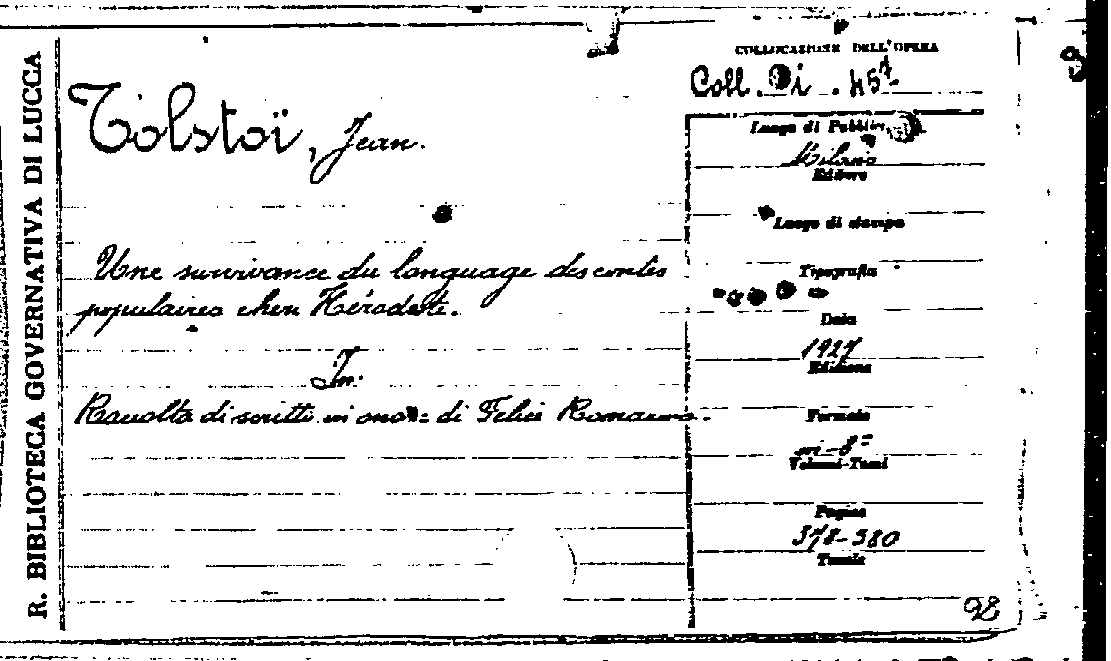 R. BIBLIOTECA GOVERNATIVA DI LUCCA
Tolstoï, Jean.
Une survivance du language des contes
populaires chen Hérodote.
In:
Raccolta di scritti in onore di Felice Romauno.
COLLOCAZIONE DELL'OPERA
Coll. Di. 457
Luogo di Pubblic.
Milano
Editore
Luogo di stampa
Tipografia
Data
1927
Edizione
Formato
in-8º
Volumi-Tomi
Pagine
378-380
Tavole
98